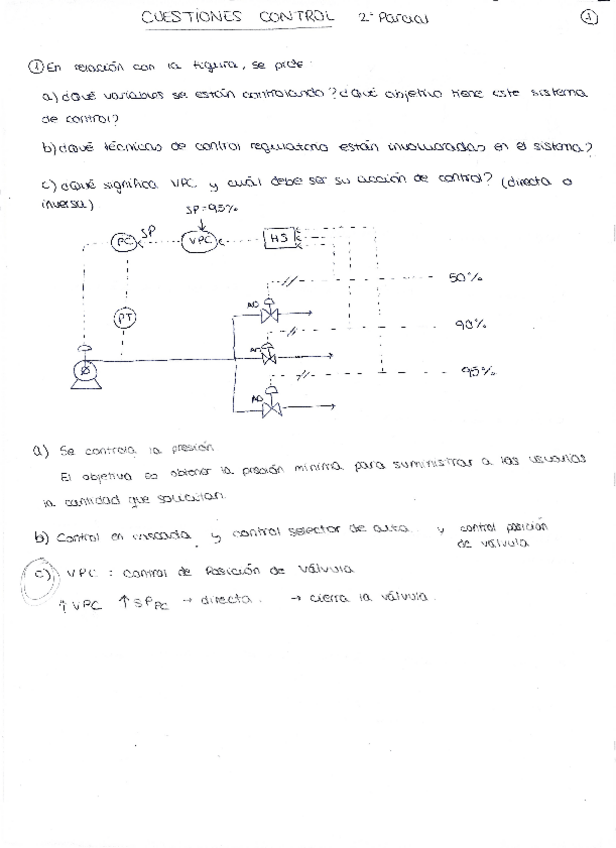 CUESTIONES CONTROL 2º Parcial
1
① En relación con la figura, se pide:
a) ¿Qué variables se están controlando? ¿Qué objetivo tiene este sistema
de control?
b) ¿Qué técnicas de control regulatorio están involucradas en el sistema?
c) ¿Qué significa VPC y cuál debe ser su acción de control? (directa o
inversa)
SP=95%
PC
SP
VPC
HS
50%
AO
PT
90%
AO
95%
AO
a) Se controla la presión
El objetivo es obtener la presión mínima para suministrar a los usuarios
la cantidad que solicitan.
b) Control en cascada, y control selector de alta y control posición
de válvula
c) VPC : Control de Posición de Válvula
↑ VPC ↑ SP PC → directa. → cierra la válvula.